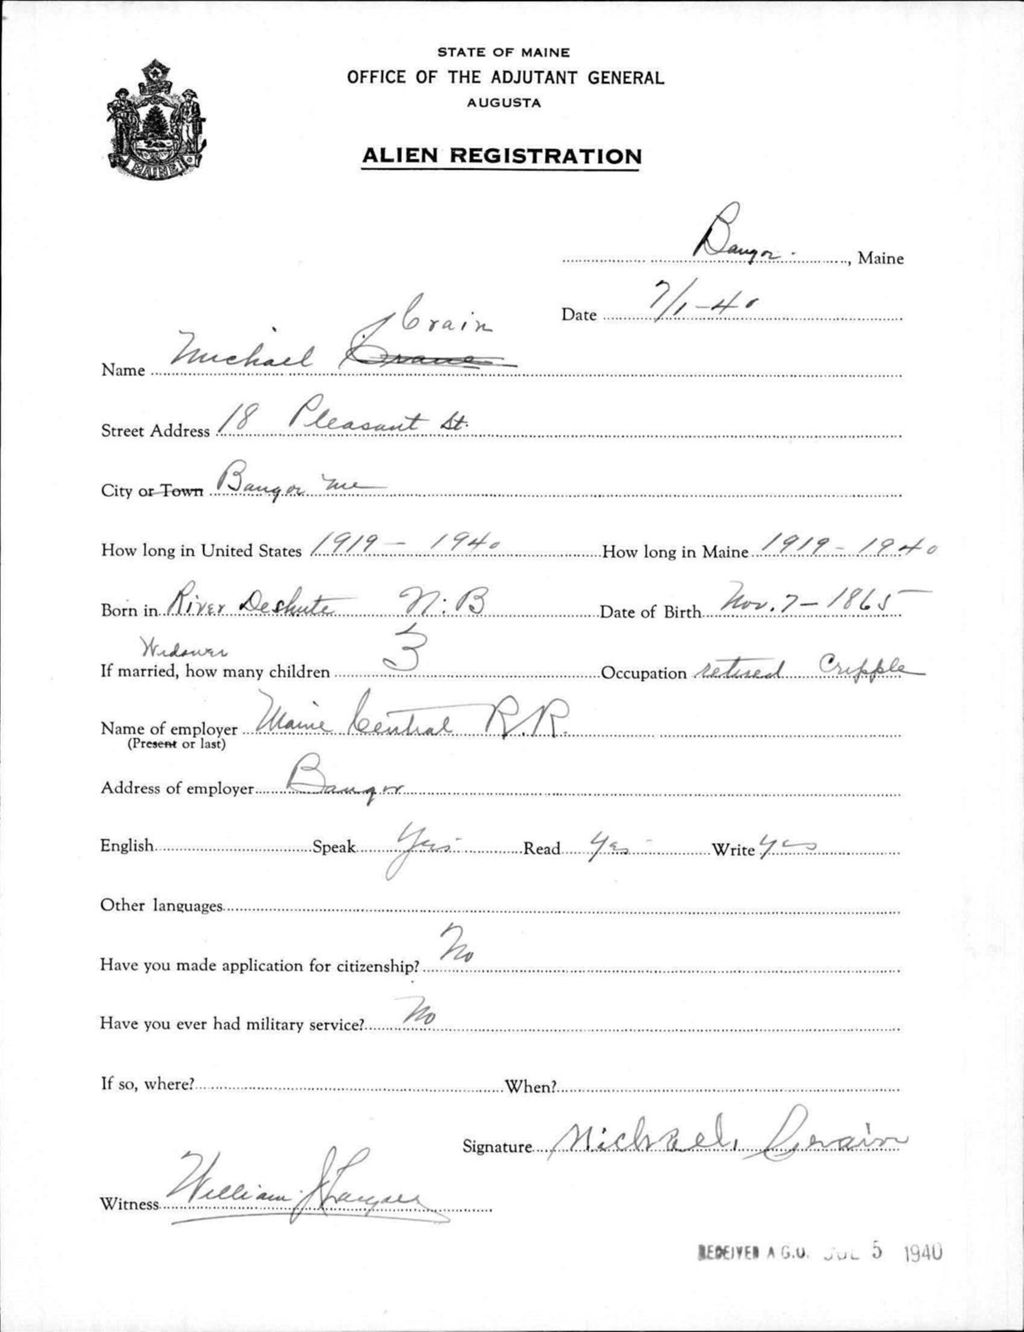 STATE OF MAINE
OFFICE OF THE ADJUTANT GENERAL
AUGUSTA
ALIEN REGISTRATION
MAINE
Bangor, Maine
Date 7/1-40
Crain
Name Michael Crane
Street Address 18 Pleasant St.
City or Town Bangor Me
How long in United States 1919 - 1940 How long in Maine 1919 - 1940
Born in River Deshute N.B Date of Birth Nov. 7 - 1865
Widower
If married, how many children 3 Occupation retired Cripple
Name of employer Maine Central R.R.
(Present or last)
Address of employer Bangor
English Speak Yes Read Yes Write Yes
Other languages
Have you made application for citizenship? No
Have you ever had military service? No
If so, where? When?
Signature Michael Crain
Witness William J
RECEIVED A.G.O. JUL 5 1940